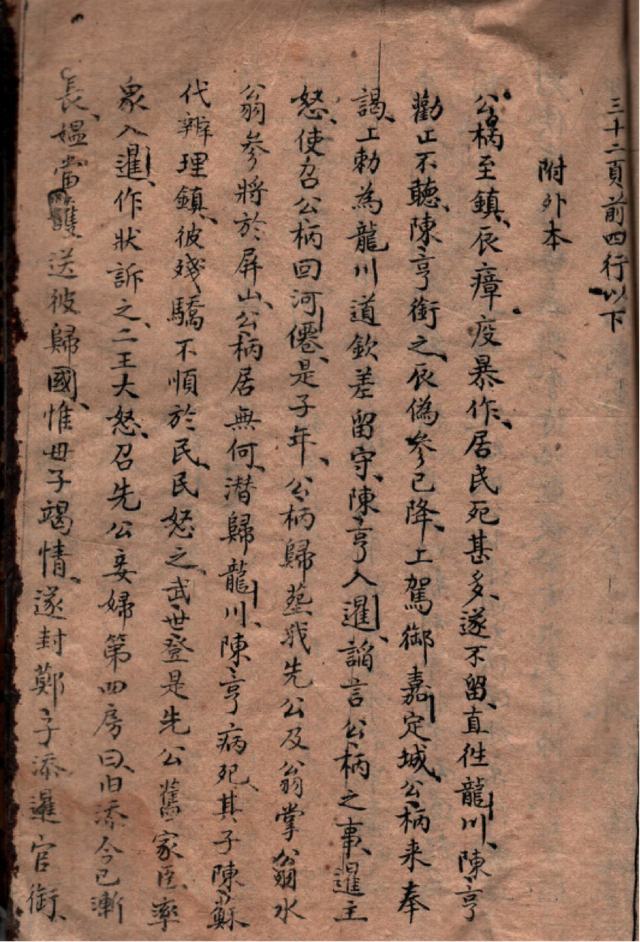 三十二頁前四行以下
附外本
公柄至鎮、辰瘴疫暴作、居民死甚多、遂不留、直往龍川、陳亨
勸止不聽、陳亨銜之、辰偽參已降、上駕御嘉定城、公柄来奉
謁、上勅為龍川道欽差留守、陳亨入暹、謟言公柄之事、暹主
怒、使召公柄回河僊、是子年、公柄歸塟我先公及翁掌翁水
翁參將於屏山、公柄居無何、潜歸龍川、陳亨病死、其子陳蘇
代辨理鎮、彼殘驕不順於民、民怒之、武世登是先公舊家臣、率
衆入暹、作狀訴之、二王大怒、召先公妾婦第四房曰、旧添今已漸
長、媼當護送彼歸國、惟毋子竭情、遂封鄭子添暹官銜、